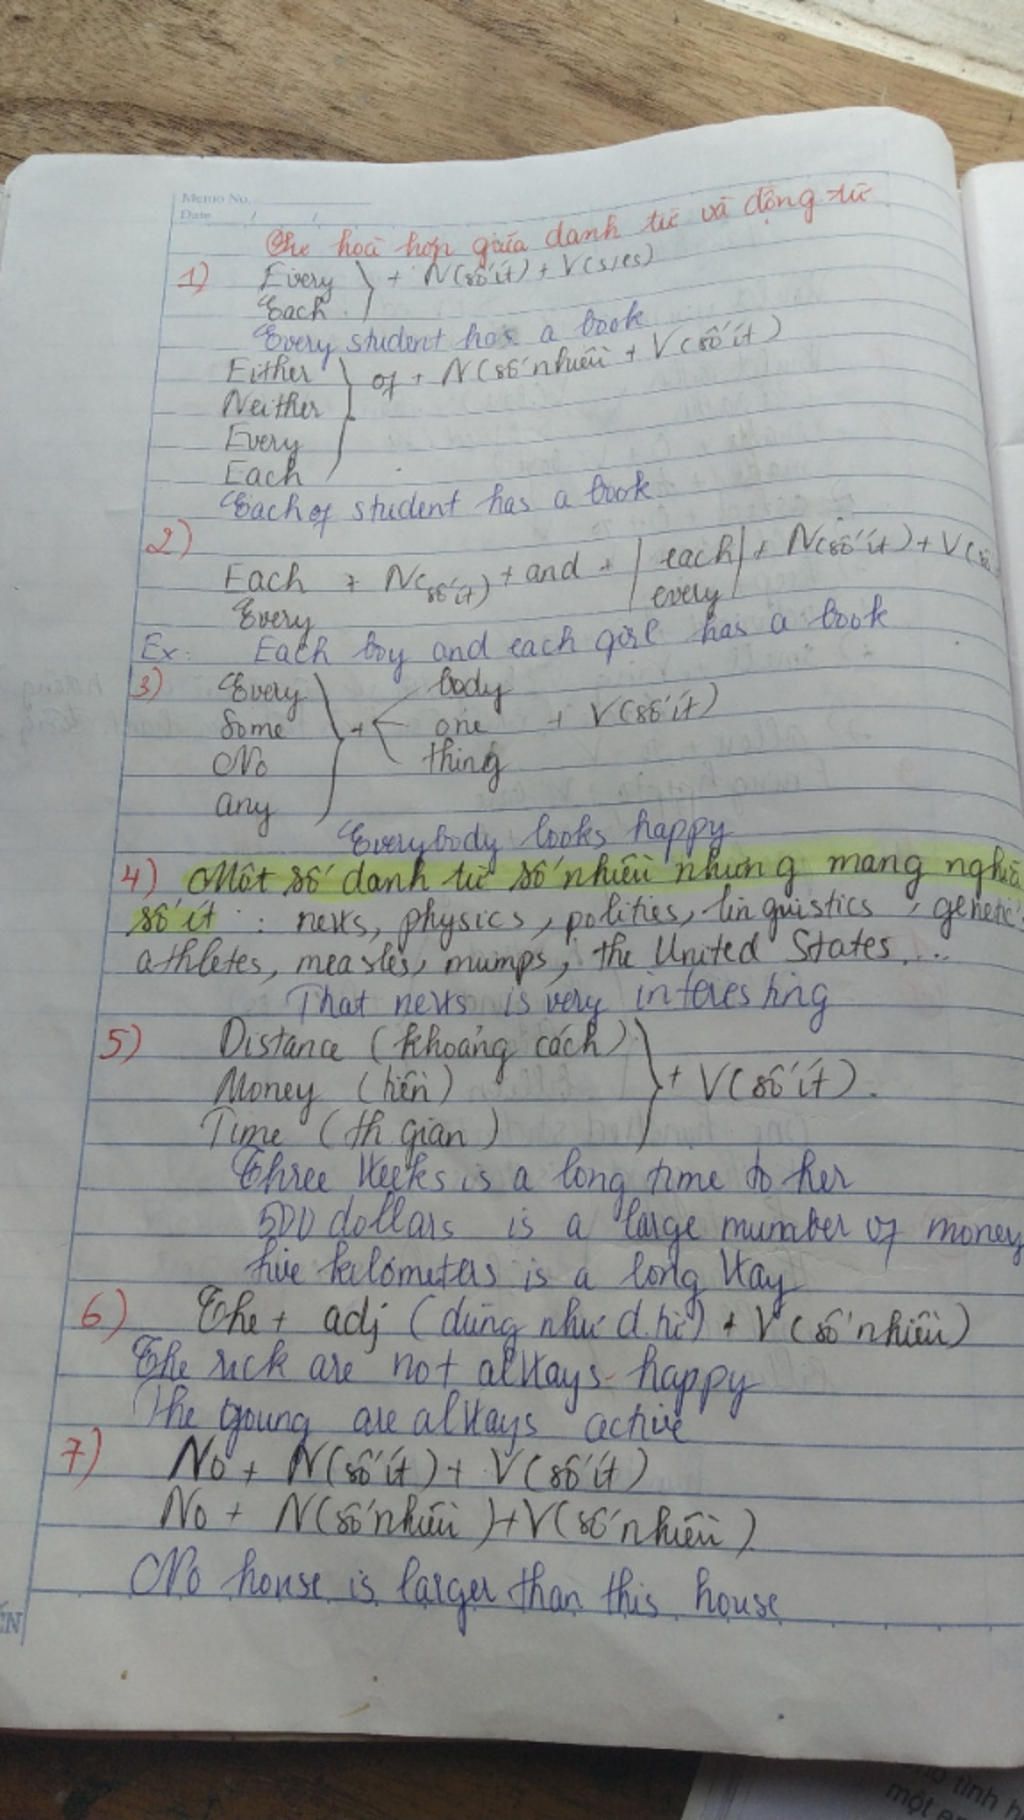 Memo No.
Date / /
Sự hoà hợp giữa danh từ và động từ
1) Every } + N(số ít) + V(s/es)
Each
Every student has a book
Either } of + N(số nhiều + V(số ít)
Neither
Every
Each
Each of student has a book
2)
Each + N(số ít) + and + | each | + N(số ít) + V(số
Every every
Ex: Each boy and each girl has a book
3) Every body
Some } + one + V(số ít)
No thing
any
Everybody looks happy
4) Một số danh từ số nhiều nhưng mang nghĩa
số ít : news, physics, polities, linguistics, genetic
athletes, measles, mumps, the United States...
That news is very interesting
5) Distance (khoảng cách)
Money (tiền) } + V(số ít).
Time (th gian)
Three weeks is a long time to her
500 dollars is a large mumber of money
five kilometers is a long way
6) The + adj (dùng như d.từ) + V(số nhiều)
The rick are not always happy
The young are always active
7) No + N(số ít) + V(số ít)
No + N(số nhiều) + V(số nhiều)
No house is larger than this house